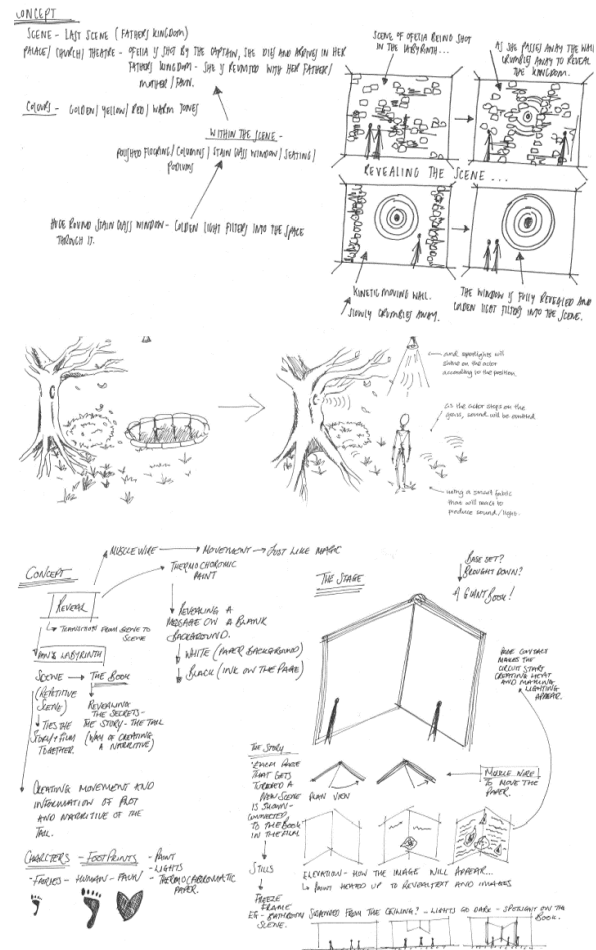 CONCEPT
SCENE - LAST SCENE (FATHERS KINGDOM)
PALACE/CHURCH/THEATRE - OFELIA IS SHOT BY THE CAPTAIN, SHE DIES AND ARRIVES IN HER
FATHERS KINGDOM - SHE IS REUNITED WITH HER FATHER/
MOTHER/FAUN.
COLOURS - GOLDEN/YELLOW/RED/WARM TONES
WITHIN THE SCENE -
POLISHED FLOORING/COLUMNS/STAIN GLASS WINDOW/SEATING/
PODIUMS
HUGE ROUND STAIN GLASS WINDOW - GOLDEN LIGHT FILTERS INTO THE SPACE
THROUGH IT.
SCENE OF OFELIA BEING SHOT
IN THE LABYRINTH...
AS SHE PASSES AWAY THE WALL
CRUMBLES AWAY TO REVEAL
THE KINGDOM.
REVEALING THE SCENE...
KINETIC MOVING WALL.
SLOWLY CRUMBLES AWAY.
THE WINDOW IS FULLY REVEALED AND
GOLDEN LIGHT FILTERS INTO THE SCENE.
and spotlights will
shine on the actor
according to the position.
as the actor steps on the
grass, sound will be emitted.
using a smart fabric
that will react to
produce sound/light.
CONCEPT
MUSCLE WIRE
MOVEMENT
JUST LIKE MAGIC
THERMOCHROMIC
PAINT
REVEAL
TRANSITION FROM SCENE TO
SCENE
PAN'S LABYRINTH
REVEALING A
MESSAGE ON A BLANK
BACKGROUND.
WHITE (PAPER BACKGROUND)
BLACK (INK ON THE PAGE)
SCENE
THE BOOK
(REPETITIVE
SCENE)
REVEALING
THE SECRETS -
THE STORY - THE TAIL
(WAY OF CREATING
A NARRITIVE)
TIES THE
STORY + FILM
TOGETHER.
CREATING MOVEMENT AND
INFORMATION OF PLOT
AND NARRITIVE OF THE
TAIL.
CHARACTERS - FOOTPRINTS
- PAINT
- LIGHTS
- FAIRIES - HUMAN - FAUN
THE STAGE
BASE SET?
BROUGHT DOWN?
A GIANT BOOK!
CONTACT
MAKES THE
CIRCUIT START
CREATING LIGHT
AND MAKING
LIGHTING
APPEAR.
THE STORY
THAT GETS
TURNED A
NEW SCENE
IS SHOWN -
CONNECTED
TO THE BOOK
IN THE FILM
PLAN VIEW
MUSCLE WIRE
TO MOVE THE
PAPER.
STILLS
FREEZE
FRAME
ELEVATION - HOW THE IMAGE WILL APPEAR...
PAINT HEATED UP TO REVEAL TEXT AND IMAGES
EG - BATHROOM SUSPENDED FROM THE CEILING? - LIGHTS GO DARK - SPOTLIGHT ON THE
SCENE.
BOOK.